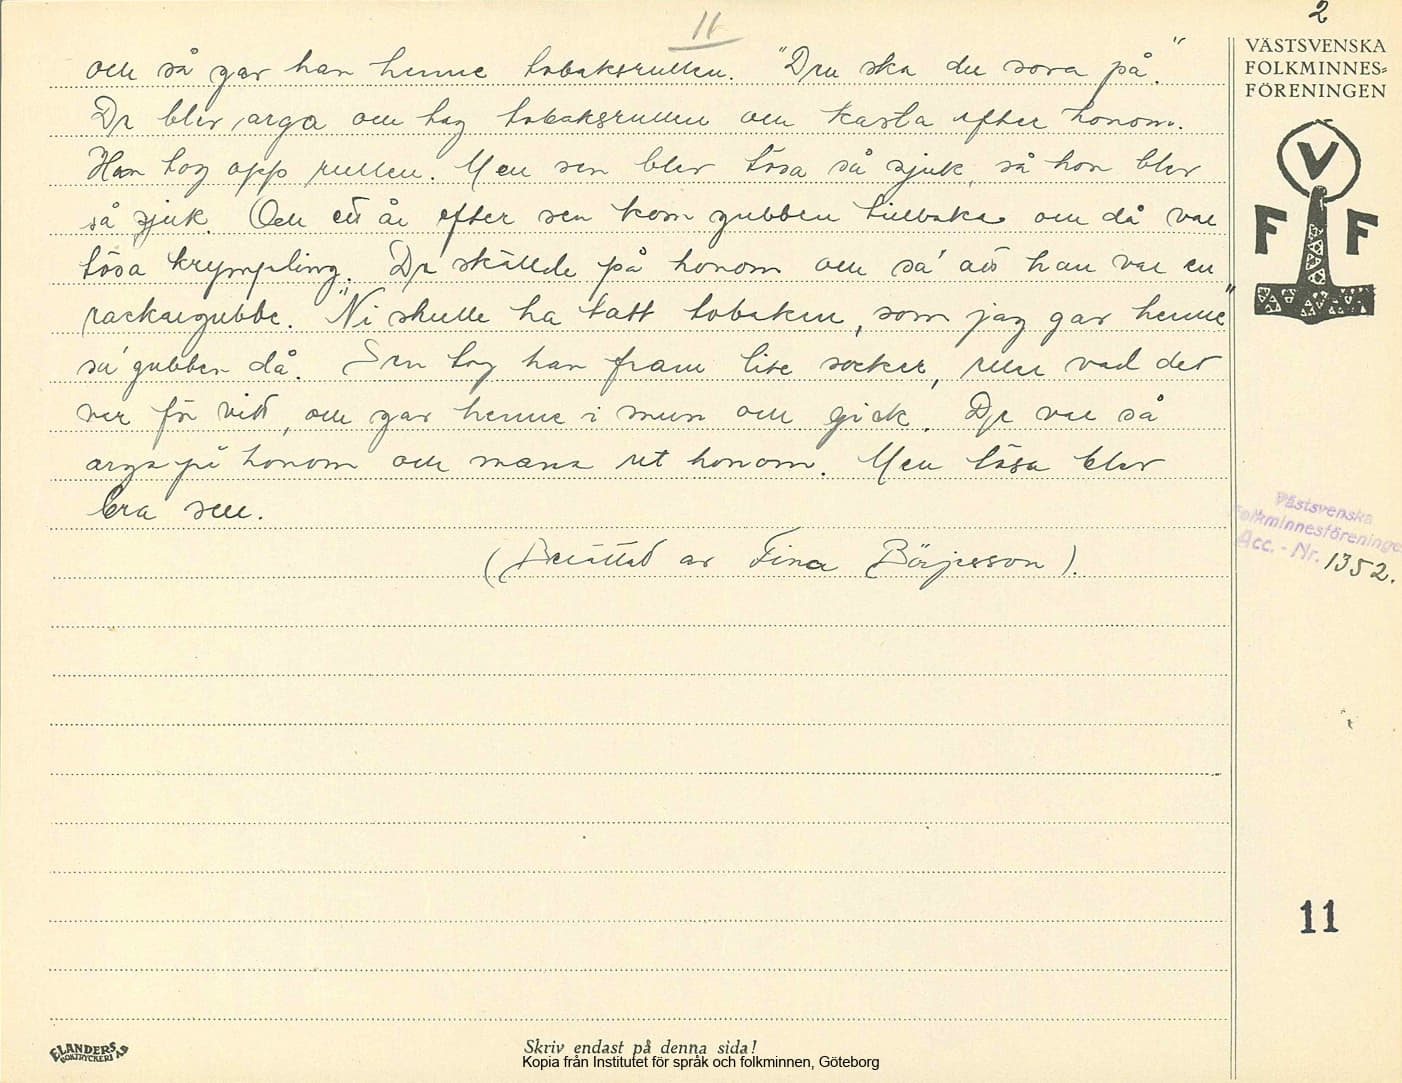 11
2
och så gav han henne tobaksrullen. "Den ska du sova på."
De blev arga och tog tobaksrullen och kasta efter honom.
Han tog opp rullen. Men sen blev tösa så sjuk, så hon blev
så sjuk. Och ett år efter sen kom gubben tillbaka och då var
tösa krympling. De skällde på honom och sa' att han var en
rackargubbe. "Ni skulle ha tatt tobaken, som jag gav henne"
sa' gubben då. Sen tog han fram lite socker, eller vad det
var för vitt, och gav henne i mun och gick. De var så
arga på honom och mana ut honom. Men tösa blev
bra sen.
(Berättat av Fina Börjesson).
VÄSTSVENSKA
FOLKMINNES=
FÖRENINGEN
V
F F
Västsvenska
Folkminnesföreningen
Acc. - Nr. 1352.
11
ELANDERS
BOKTRYCKERI AB
Skriv endast på denna sida!
Kopia från Institutet för språk och folkminnen, Göteborg